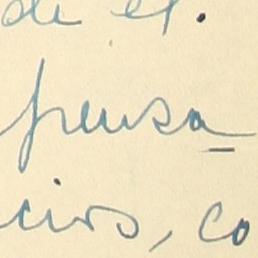 de el.
pensa
cios, co